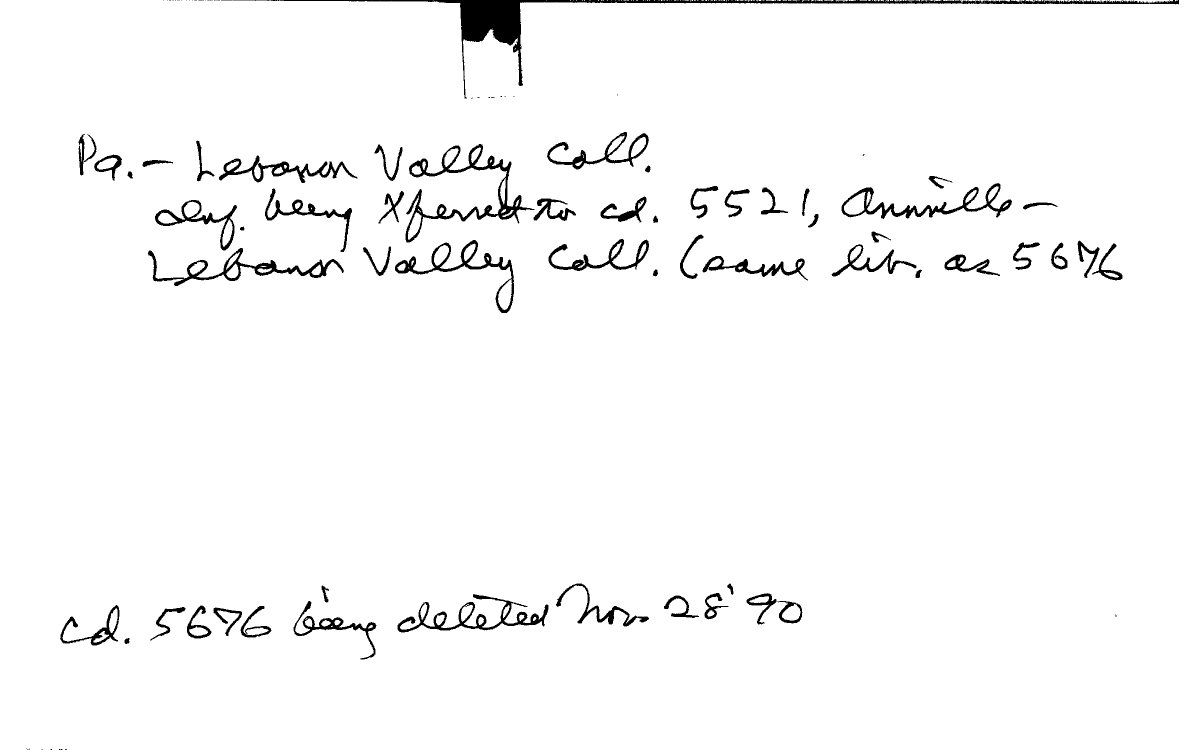 Pa. - Lebanon Valley Coll.
Inf. being Xferred to cd. 5521, Annville -
Lebanon Valley Coll. (same lib. as 5676
cd. 5676 being deleted Nov 28 '90